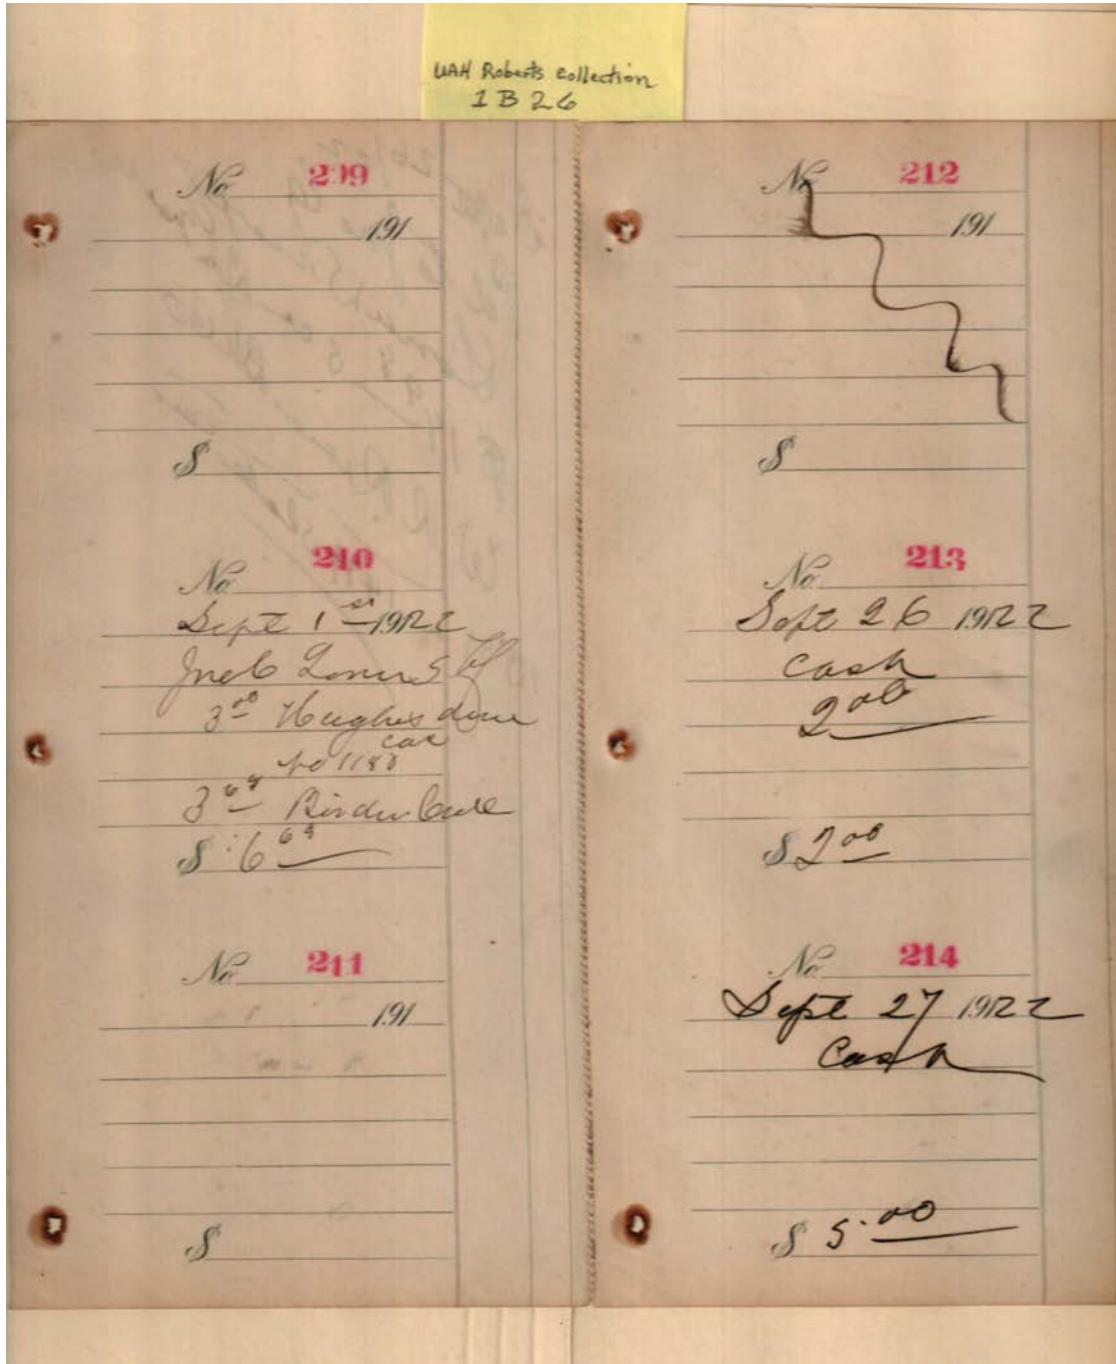 UAH Roberts Collection
1B26
No 209
191
$
No 210
Sept 1st 1922
3 00 Hughes
car
3 69 Binder
$ 6 69
No 211
191
$
No 212
191
$
No 213
Sept 26 1922
Cash
2 00
$ 2 00
No 214
Sept 27 1922
Cash
$ 5.00